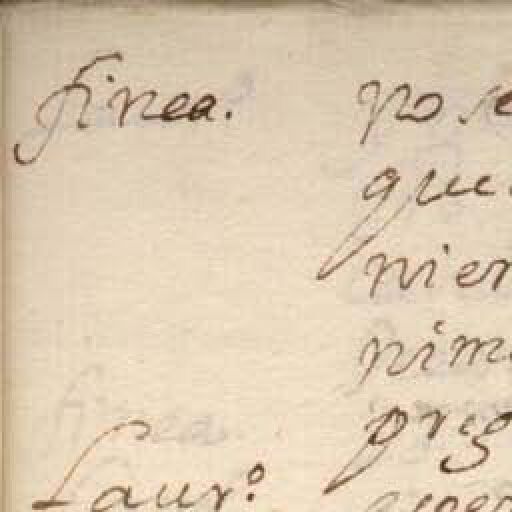 finea. no se
que
nier
nim
preg
Laur.º